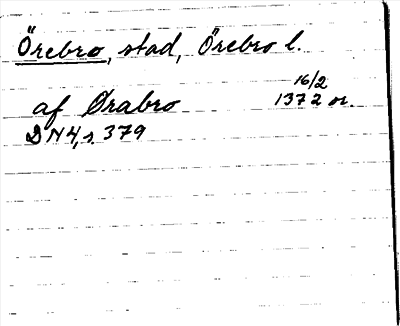 Örebro, stad, Örebro l.
16/2
af Ørabro 1372 or.
DN4, s. 379